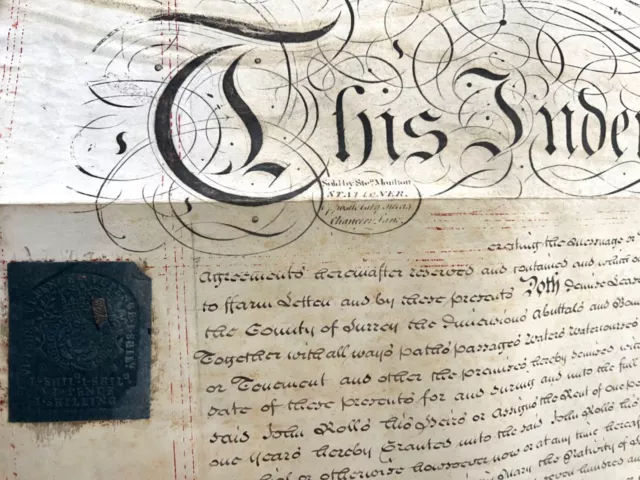 This Inden
Sold by Stepn. Moulton
STATIONER.
Chancery Lane
erecting the Messuage or
Agreements hereinafter reserved and contained and which o
to ffarm Letten and by these presents Doth demise Leas
the County of Surrey the dimensions abuttals and Bou
Together with all ways paths passages Waters Watercourses
or Tenement and other the premises hereby demised with
date of these presents for and during and unto the full
said John Rolls his Heirs or Assigns the Rent of one pe
one years hereby Granted unto the said John Rolls his
or otherwise howsoever now or at any time hereaf
Mary the Nativity of
hundred an
I·SHIL·I·SHIL
PENCE
I·SHILLING